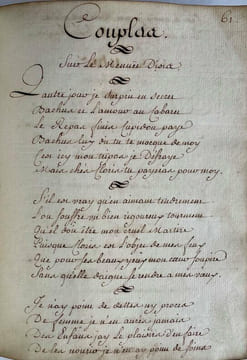 61
Couplaa.
Sur le Menuée Djsia
L'autre jour je surpin en secret
Bachus et l'amour au Cabaret
Le Repas finis Cupidon paye
Bachus luy dit tu te mocque de moy
C'est icy mon
Mais chés Cloris tu payeras pour moy.
S'il est vray qu'en aimant tendrement
L'on souffre un bien rigoureux tourment
Quel doit être mon cruel Martire
Puisque Cloris est l'objet de mes feux
Que pour ses beaux yeux mon cœur soupire
Sans qu'elle daigne se rendre a mes vœux.
Je n'ay point de dettes ny procés
De femme je n'en aurés jamais
Des Enfans j'ay le plaisir d'en faire
De les nourir je n'en ay point de soins